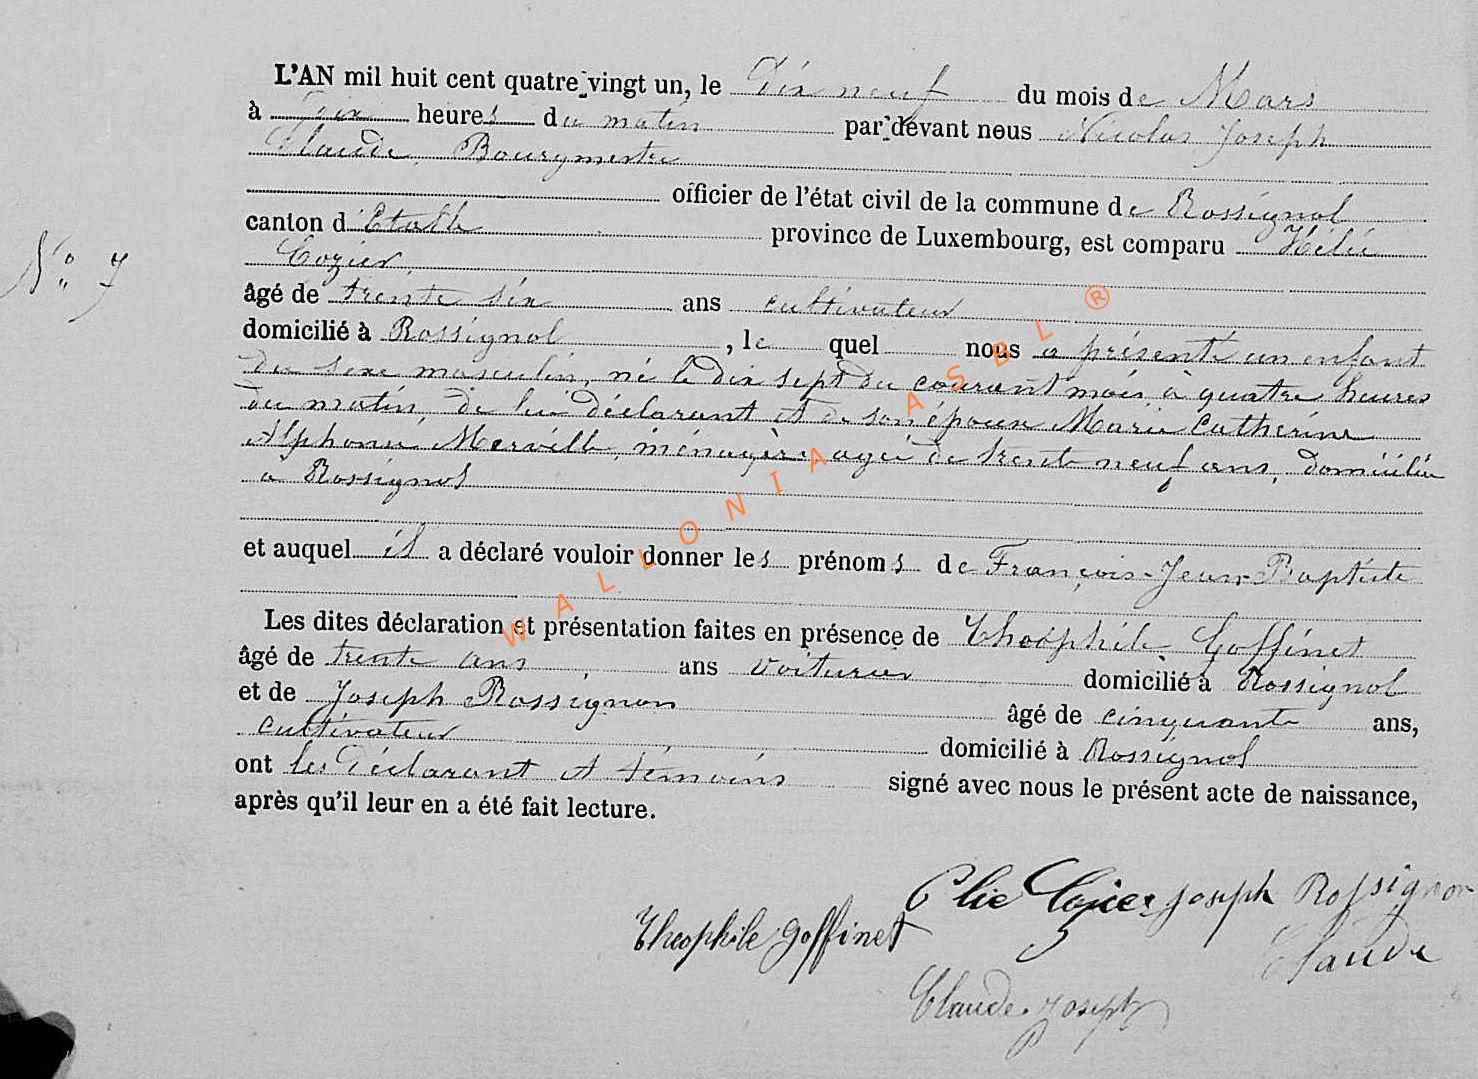 L'AN mil huit cent quatre-vingt un, le Dix neuf du mois de Mars
à Dix heures du matin par-devant nous Nicolas Joseph
Claude, Bourgmestre
officier de l'état civil de la commune de Rossignol
canton d'Etalle province de Luxembourg, est comparu Hélie
Lozier,
N° 7
âgé de trente six ans cultivateur
domicilié à Rossignol, lequel nous a présenté un enfant
du sexe masculin, né le dix sept du courant mois à quatre heures
du matin, de lui déclarant et de son épouse Marie Catherine
Alphonsé Merville, ménagère, agée de trente neuf ans, domiciliée
à Rossignol
et auquel il a déclaré vouloir donner les prénoms de François-Jean-Baptiste
Les dites déclaration et présentation faites en présence de Théophile Goffinet
âgé de trente ans ans voiturier domicilié à Rossignol
et de Joseph Rossignon âgé de cinquante ans,
cultivateur domicilié à Rossignol
ont les Déclarant et témoins signé avec nous le présent acte de naissance,
après qu'il leur en a été fait lecture.
Elie Lozier Joseph Rossignon
Théophile Goffinet
Claude
Claude Joseph
WALLONIA ASBL ®